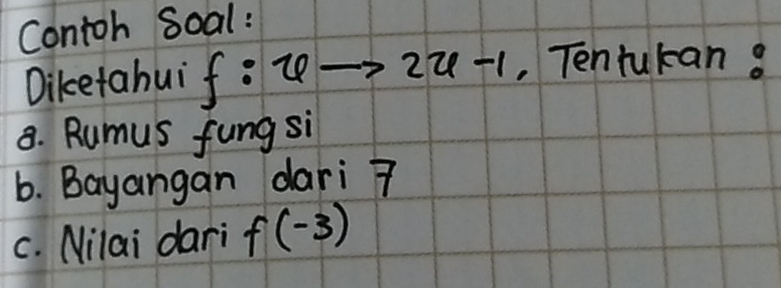 Contoh Soal:
Diketahui f : x → 2x - 1, Tentukan :
a. Rumus fungsi
b. Bayangan dari 7
c. Nilai dari f(-3)